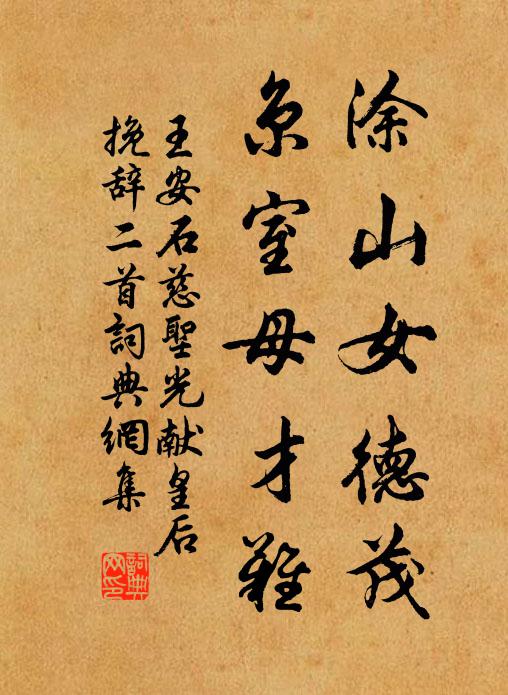 涂山女德茂
京室母才難
王安石慈聖光献皇后
挽辞二首詞典網集
詞典网印